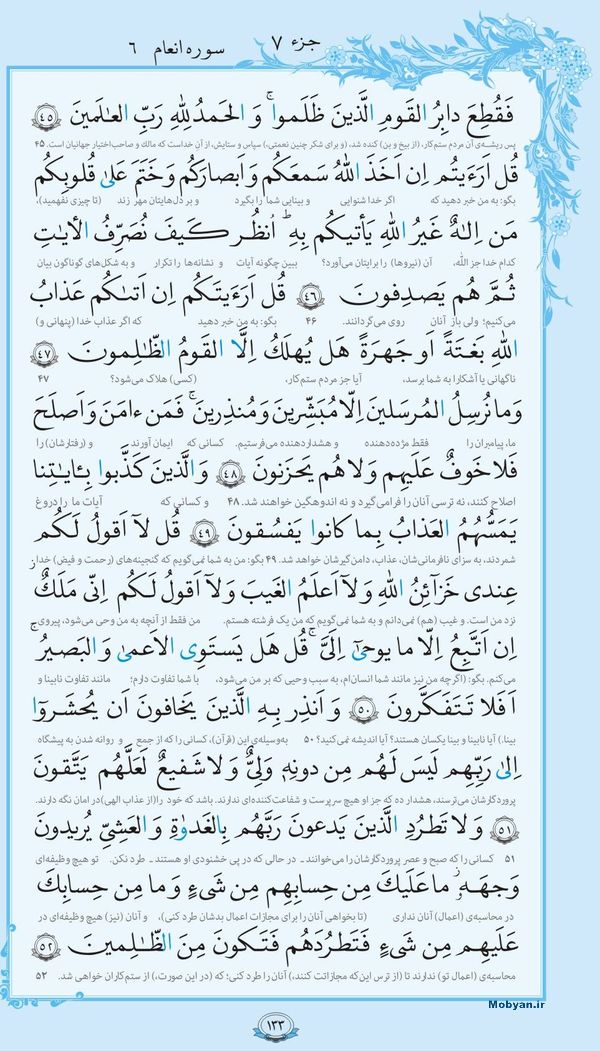 جزء ۷ سوره انعام ۶
فَقُطِعَ دابِرُ القَومِ الَّذينَ ظَلَموا ۚ وَ الحَمدُ لِلّٰهِ رَبِّ العٰلَمينَ ﴿۴۵﴾
پس ریشه‌ی آن مردم ستم‌کار، (از بیخ و بن) کنده شد، (و برای شکر چنین نعمتی) سپاس و ستایش، از آنِ خداست که مالک و صاحب‌اختیار جهانیان است. ۴۵
قُل اَرَءَیتُم اِن اَخَذَ اللهُ سَمعَکُم وَ اَبصارَکُم وَ خَتَمَ عَلىٰ قُلوبِکُم
بگو: به من خبر دهید که اگر خدا شنوایی و بینایی شما را بگیرد و بر دل‌هایتان مهر زند (تا چیزی نفهمید)،
مَن اِلٰهٌ غَیرُ اللهِ یَأتیکُم بِهِ ۗ اُنظُر کَیفَ نُصَرِّفُ الأٰیٰتِ
کدام خدا جز اللّه، آن (نیروها) را برایتان می‌آورد؟ ببین چگونه آیات و نشانه‌ها را تکرار و به شکل‌های گوناگون بیان
ثُمَّ هُم یَصدِفونَ ﴿۴۶﴾ قُل اَرَءَیتَکُم اِن اَتىٰکُم عَذابُ
می‌کنیم؛ ولی باز آنان روی می‌گردانند. ۴۶ بگو: به من خبر دهید که اگر عذاب خدا (پنهانی و)
اللهِ بَغتَةً اَو جَهرَةً هَل یُهلَکُ اِلَّا القَومُ الظّٰلِمونَ ﴿۴۷﴾
ناگهانی یا آشکارا به شما برسد، آیا جز مردم ستم‌کار، (کسی) هلاک می‌شود؟ ۴۷
وَ ما نُرسِلُ المُرسَلینَ اِلّا مُبَشِّرینَ وَ مُنذِرینَ ۖ فَمَن ءامَنَ وَ اَصلَحَ
ما، پیامبران را فقط مژده‌دهنده و هشداردهنده می‌فرستیم. کسانی که ایمان آورند و (رفتارشان) را
فَلا خَوفٌ عَلَیهِم وَ لا هُم یَحزَنونَ ﴿۴۸﴾ وَ الَّذینَ کَذَّبوا بِـٔایٰتِنا
اصلاح کنند، نه ترسی آنان را فرامی‌گیرد و نه اندوهگین خواهند شد. ۴۸ و کسانی که آیات ما را دروغ
یَمَسُّهُمُ العَذابُ بِما کانوا یَفسُقونَ ﴿۴۹﴾ قُل لا اَقولُ لَکُم
شمردند، به سزای نافرمانی‌شان، عذاب، دامن‌گیرشان خواهد شد. ۴۹ بگو: من به شما نمی‌گویم که گنجینه‌های (رحمت و فیض) خدا
عِندی خَزآئِنُ اللهِ وَ لا اَعلَمُ الغَیبَ وَ لا اَقولُ لَکُم اِنّی مَلَکٌ
نزد من است. و غیب (هم) نمی‌دانم و به شما نمی‌گویم که من یک فرشته هستم. من فقط از آنچه به من وحی می‌شود، پیروی
اِن اَتَّبِعُ اِلّا ما یوحىٰ اِلَیَّ ۚ قُل هَل یَستَوِی الاَعمىٰ وَ البَصیرُ ۚ
می‌کنم. بگو: (اگرچه من نیز مانند شما انسان‌ام، به سبب وحیی که بر من می‌شود، با شما تفاوت دارم؛ مانند تفاوت نابینا و
اَفَلا تَتَفَکَّرونَ ﴿۵۰﴾ وَ اَنذِر بِهِ الَّذینَ یَخافونَ اَن یُحشَروا
بینا.) آیا نابینا و بینا یکسان هستند؟ آیا اندیشه نمی‌کنید؟ ۵۰ به‌وسیله‌ی این (قرآن)، کسانی را که از جمع و روانه شدن به پیشگاه
اِلىٰ رَبِّهِم لَیسَ لَهُم مِن دونِهِ وَلِیٌّ وَ لا شَفیعٌ لَعَلَّهُم یَتَّقونَ
پروردگارشان می‌ترسند، هشدار ده که جز او هیچ سرپرست و شفاعت‌کننده‌ای ندارند. باشد که خود را (از عذاب الهی) در امان نگه دارند.
﴿۵۱﴾ وَ لا تَطرُدِ الَّذینَ یَدعونَ رَبَّهُم بِالغَدوٰةِ وَ العَشِیِّ یُریدونَ
۵۱ کسانی را که صبح و عصر پروردگارشان را می‌خوانند ـ در حالی که در پی خشنودی او هستند ـ طرد نکن. تو هیچ وظیفه‌ای
وَجهَهُ ۖ ما عَلَیکَ مِن حِسابِهِم مِن شَیءٍ وَ ما مِن حِسابِکَ
در محاسبه‌ی (اعمال) آنان نداری (تا بخواهی آنان را برای مجازات اعمال بدشان طرد کنی)، و آنان (نیز) هیچ وظیفه‌ای در
عَلَیهِم مِن شَیءٍ فَتَطرُدَهُم فَتَکونَ مِنَ الظّٰلِمینَ ﴿۵۲﴾
محاسبه‌ی (اعمال تو) ندارند تا (از ترس این‌که مجازاتت کنند،) آنان را طرد کنی؛ که (در این صورت،) از ستم‌کاران خواهی شد. ۵۲
۱۳۳
Mobyan.ir